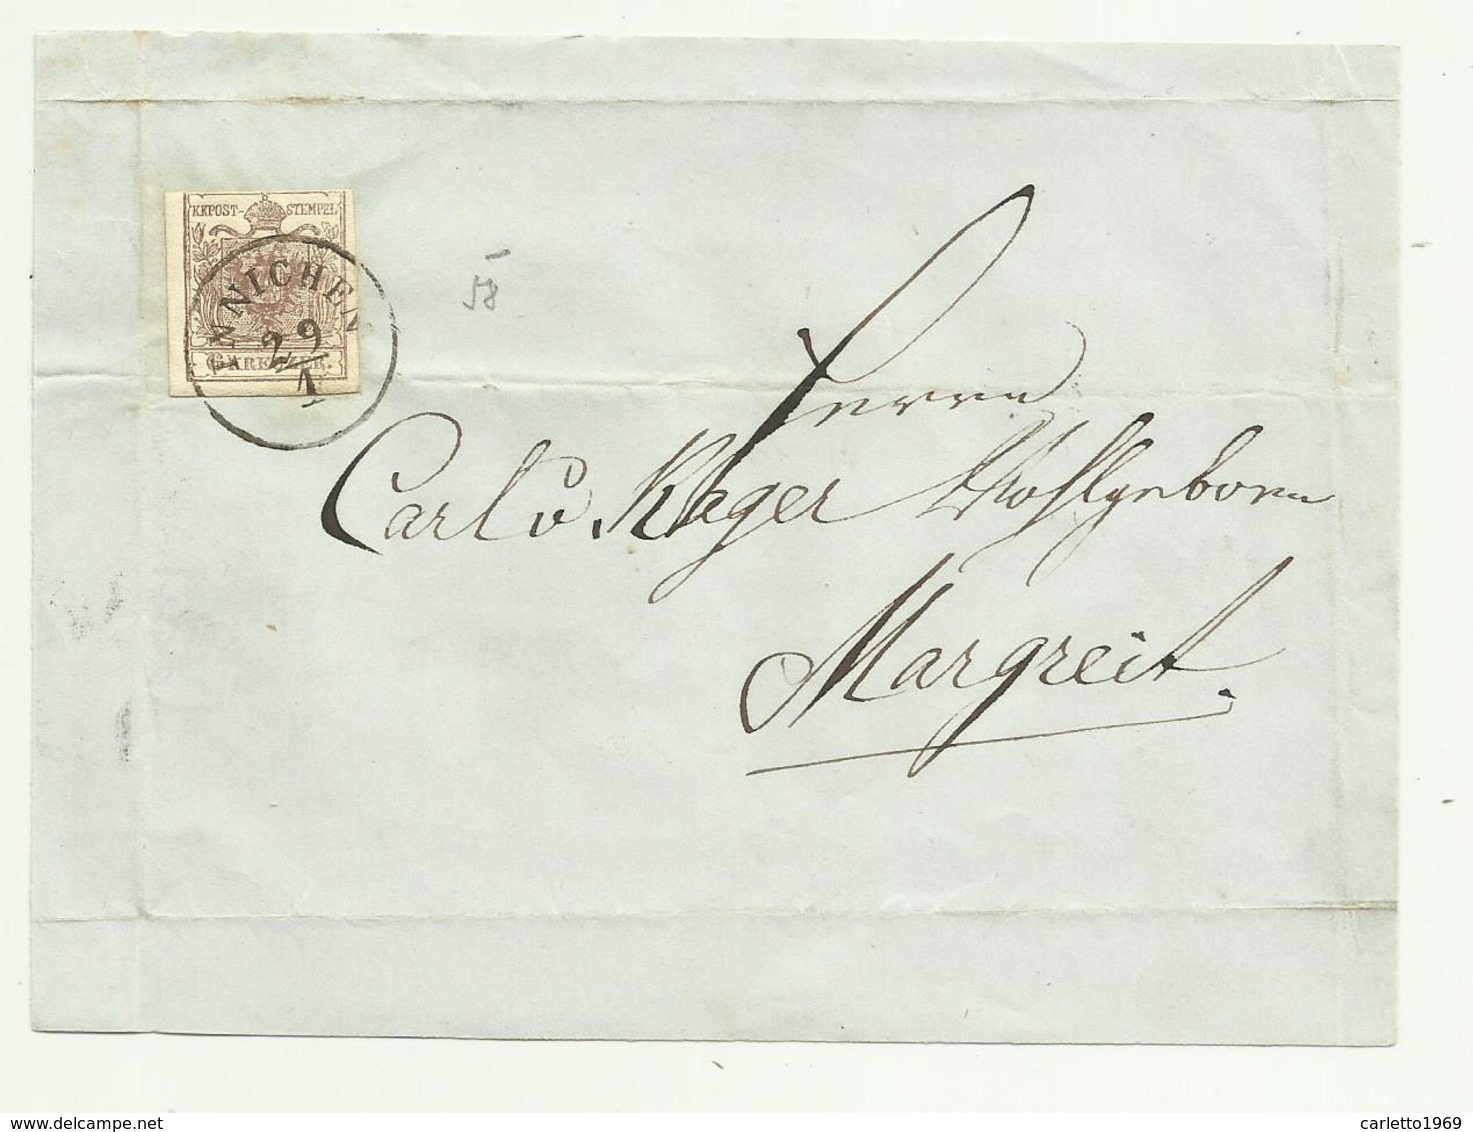 KKPOST-STEMPEL
INNICHEN
29
1
6 KREUZER.
58
Herrn
Carl v. Kager Wohlgeborn
Margreit.
www.delcampe.net
carletto1969